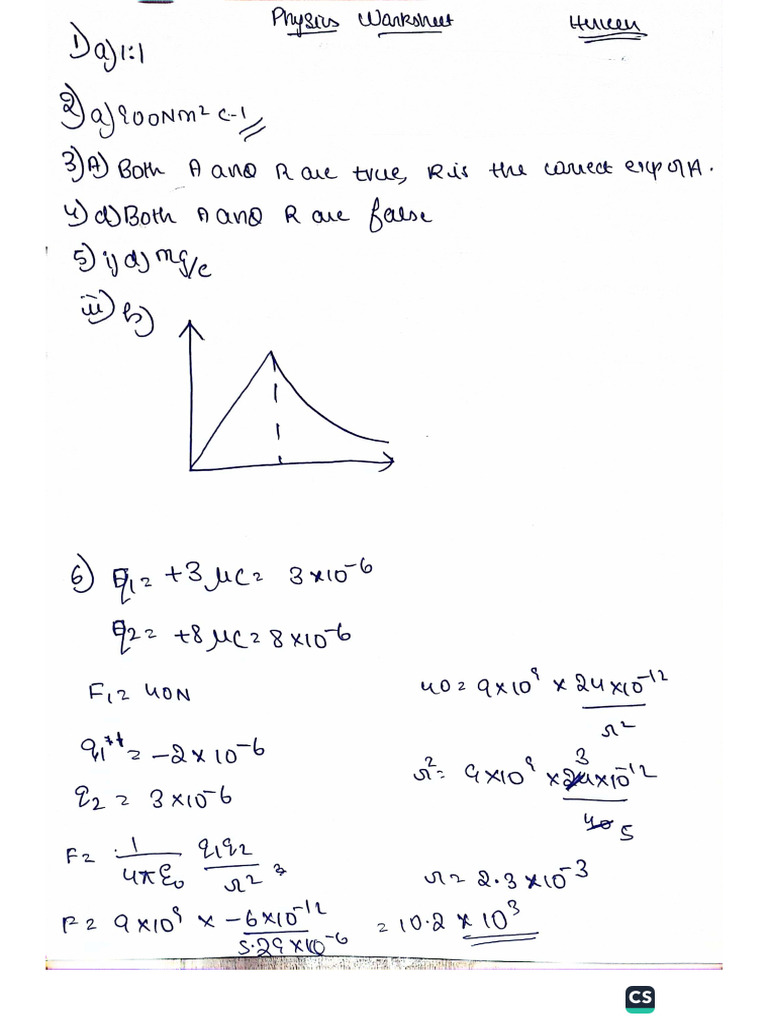 Physics Worksheet
1) a) 1:1
2) a) 200Nm² C-1
3) A) Both A and R are true, R is the correct exp of A.
4) d) Both A and R are false
5) i) d) mg/e
iii) b)
6) q1 = +3 μC = 3×10⁻⁶
q2 = +8 μC = 8×10⁻⁶
F1 = 40N
q1** = -2 × 10⁻⁶
q2 = 3×10⁻⁶
F = 1/4πε₀ q1q2/r²
F = 9×10⁹ × -6×10⁻¹²/5.29×10⁻⁶ = 10.2 × 10³
40 = 9×10⁹ × 24×10⁻¹²/r²
r² = 9×10⁹ × 24×10⁻¹²/40 3 5
r = 2.3×10⁻³
CS